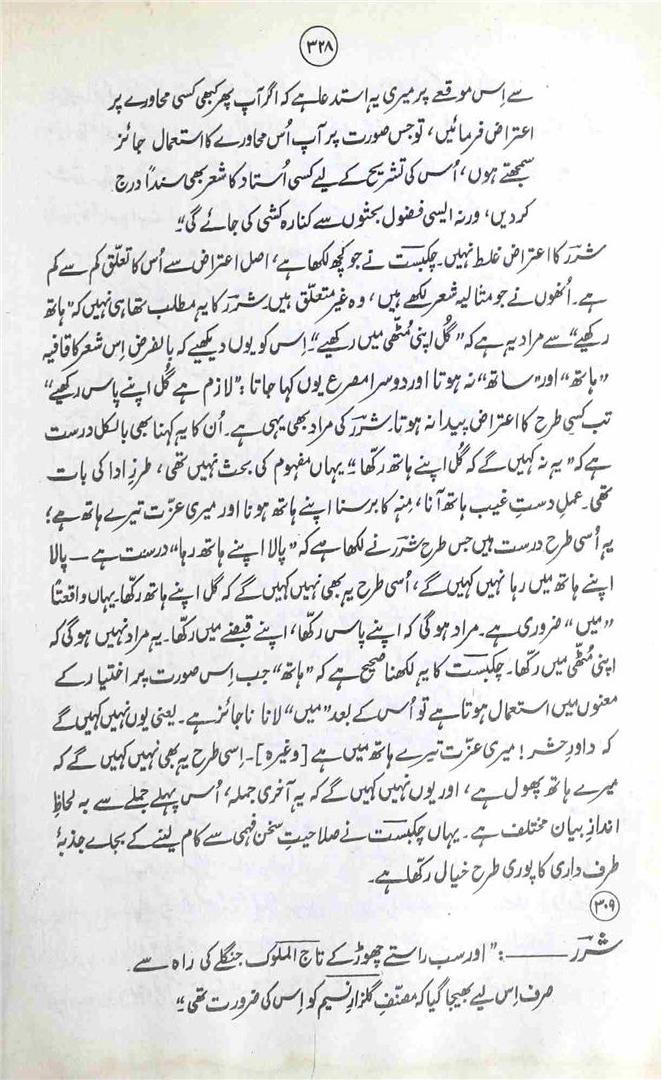 ۳۲۸
سے اِس موقعے پر میری یہ استدعا ہے کہ اگر آپ پھر کبھی کسی محاورے پر
اعتراض فرمائیں، تو جس صورت پر آپ اُس محاورے کا استعمال جائز
سمجھتے ہوں، اُس کی تشریح کے لیے کسی اُستاد کا شعر بھی سنداً درج
کر دیں، ورنہ ایسی فضول بحثوں سے کنارہ کشی کی جائے گی“
شررؔ کا اعتراض غلط نہیں۔ چکبستؔ نے جو کچھ لکھا ہے، اصل اعتراض سے اُس کا تعلّق کم سے کم
ہے۔ اُنھوں نے جو مثالیہ شعر لکھے ہیں، وہ غیر متعلّق ہیں۔ شررؔ کا یہ مطلب تھا ہی نہیں کہ ”ہاتھ
رکھیے“ سے مراد یہ ہے کہ ”گُل اپنی مُٹھّی میں رکھیے“۔ اِس کو یوں دیکھیے کہ بالفرض اِس شعر کا قافیہ
”ہاتھ“ اور ”ساتھ“ نہ ہوتا اور دوسرا مصرع یوں کہا جاتا: ”لازم ہے گُل اپنے پاس رکھیے“
تب کسی طرح کا اعتراض پیدا نہ ہوتا۔ شررؔ کی مراد بھی یہی ہے۔ اُن کا یہ کہنا بھی بالکل درست
ہے کہ ”یہ نہ کہیں گے کہ گُل اپنے ہاتھ رکھّا“۔ یہاں مفہوم کی بحث نہیں تھی، طرزِ ادا کی بات
تھی۔ عملِ دستِ غیب ہاتھ آنا، مِنہ کا برسنا اپنے ہاتھ ہونا اور میری عزّت تیرے ہاتھ ہے؛
یہ اُسی طرح درست ہیں جس طرح شررؔ نے لکھا ہے کہ ”پالا اپنے ہاتھ رہا“ درست ہے — پالا
اپنے ہاتھ میں رہا نہیں کہیں گے، اُسی طرح یہ بھی نہیں کہیں گے کہ گل اپنے ہاتھ رکھّا۔ یہاں واقعتاً
”میں“ ضروری ہے۔ مراد ہوگی کہ اپنے پاس رکھّا، اپنے قبضے میں رکھّا۔ یہ مراد نہیں ہوگی کہ
اپنی مُٹھّی میں رکھّا۔ چکبستؔ کا یہ لکھنا صحیح ہے کہ ”ہاتھ“ جب اِس صورت پر اختیار کے
معنوں میں استعمال ہوتا ہے تو اُس کے بعد ”میں“ لانا ناجائز ہے۔ یعنی یوں نہیں کہیں گے
کہ داورِ حشر! میری عزّت تیرے ہاتھ میں ہے [وغیرہ]۔ اِسی طرح یہ بھی نہیں کہیں گے کہ
میرے ہاتھ پھول ہے، اور یوں نہیں کہیں گے کہ یہ آخری جملہ، اُس پہلے جملے سے بہ لحاظِ
اندازِ بیان مختلف ہے۔ یہاں چکبستؔ نے صلاحیتِ سخن فہمی سے کام لینے کے بجاے جذبۂ
طرف داری کا پوری طرح خیال رکھا ہے۔
۳۰۹
شررؔ ——— : ”اور سب راستے چھوڑ کے تاج الملوک جنگلے کی راہ سے
صرف اِس لیے بھیجا گیا کہ مصنّفِ گلزارِ نسیم کو اِس کی ضرورت تھی“